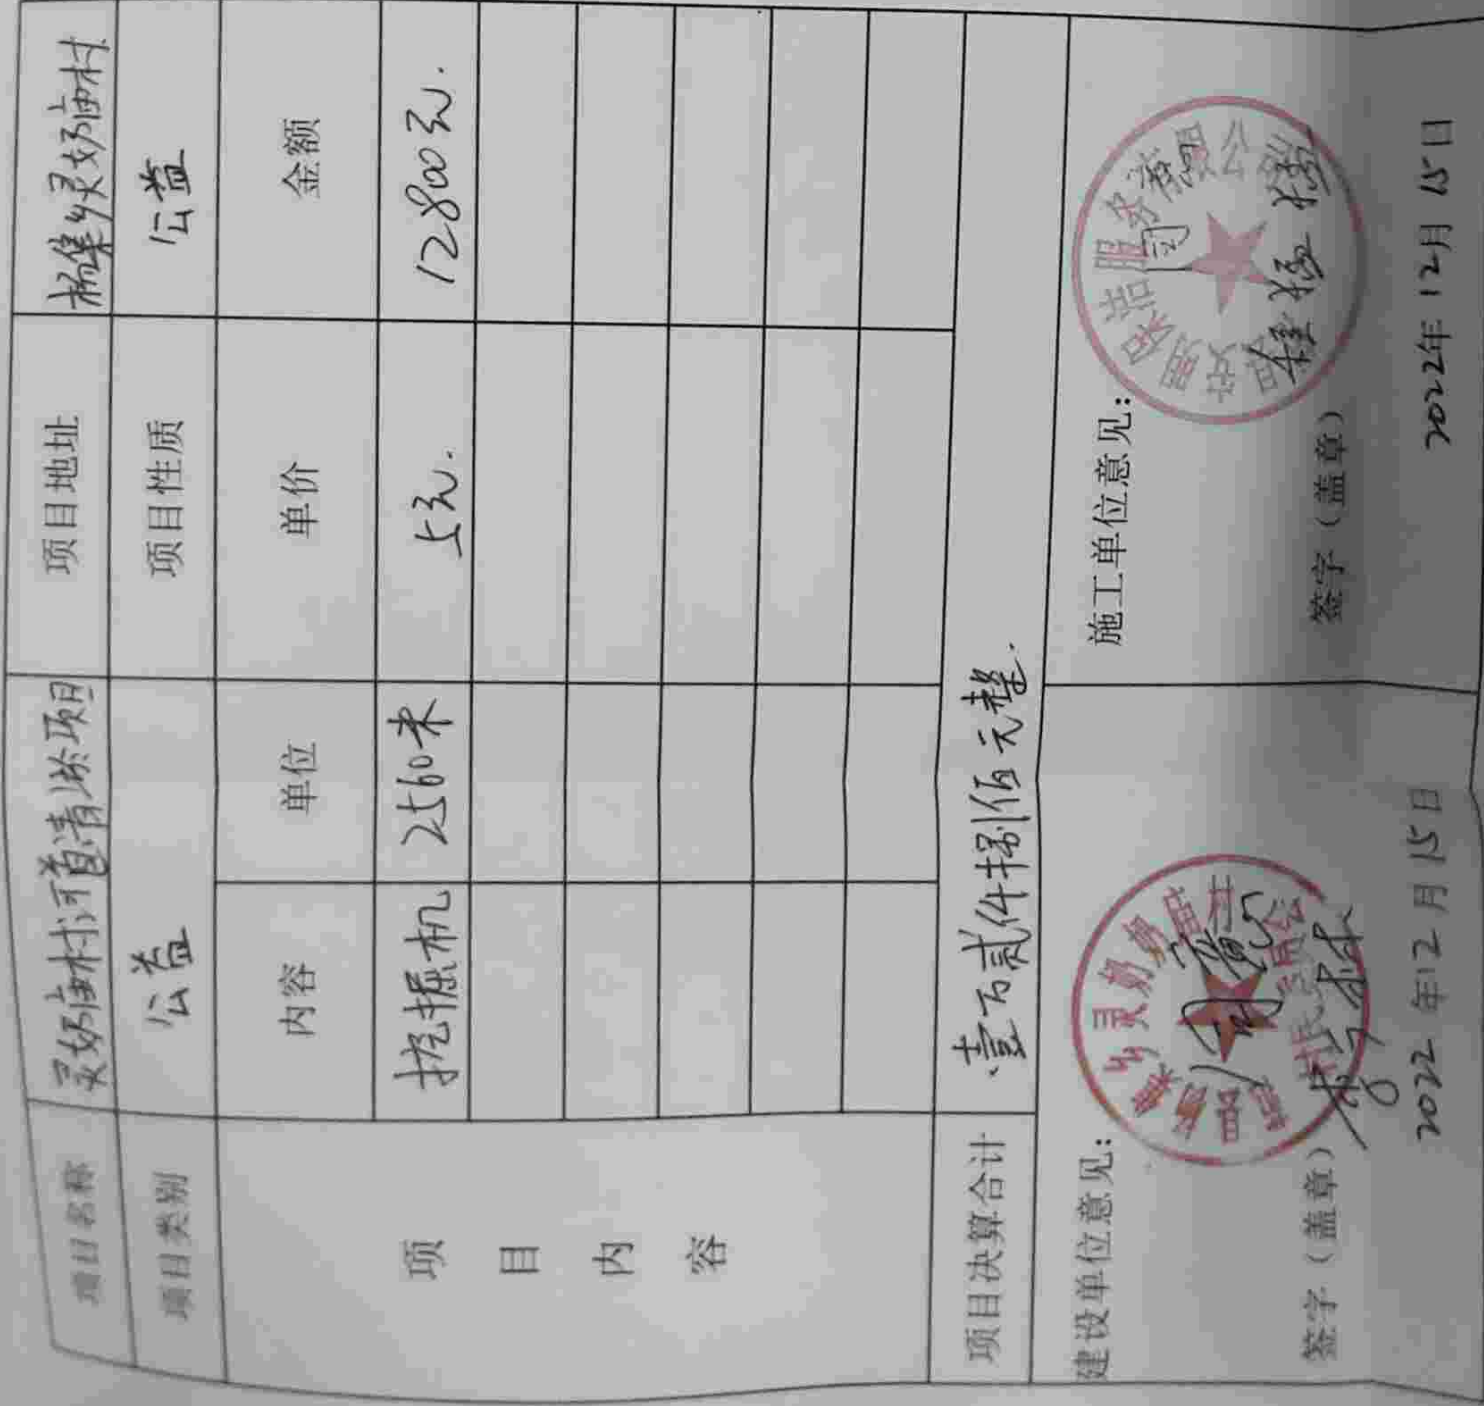 项目名称 灵奶庙村河道清淤项目 项目地址 杨集乡灵奶庙村
项目类别 公益 项目性质 公益
项目内容 内容 单位 单价 金额
挖掘机 2560米 5元. 12800元.
项目决算合计 壹万贰仟捌佰元整.
建设单位意见: 施工单位意见:
签字（盖章） 签字（盖章）
2022年12月15日 2022年12月15日